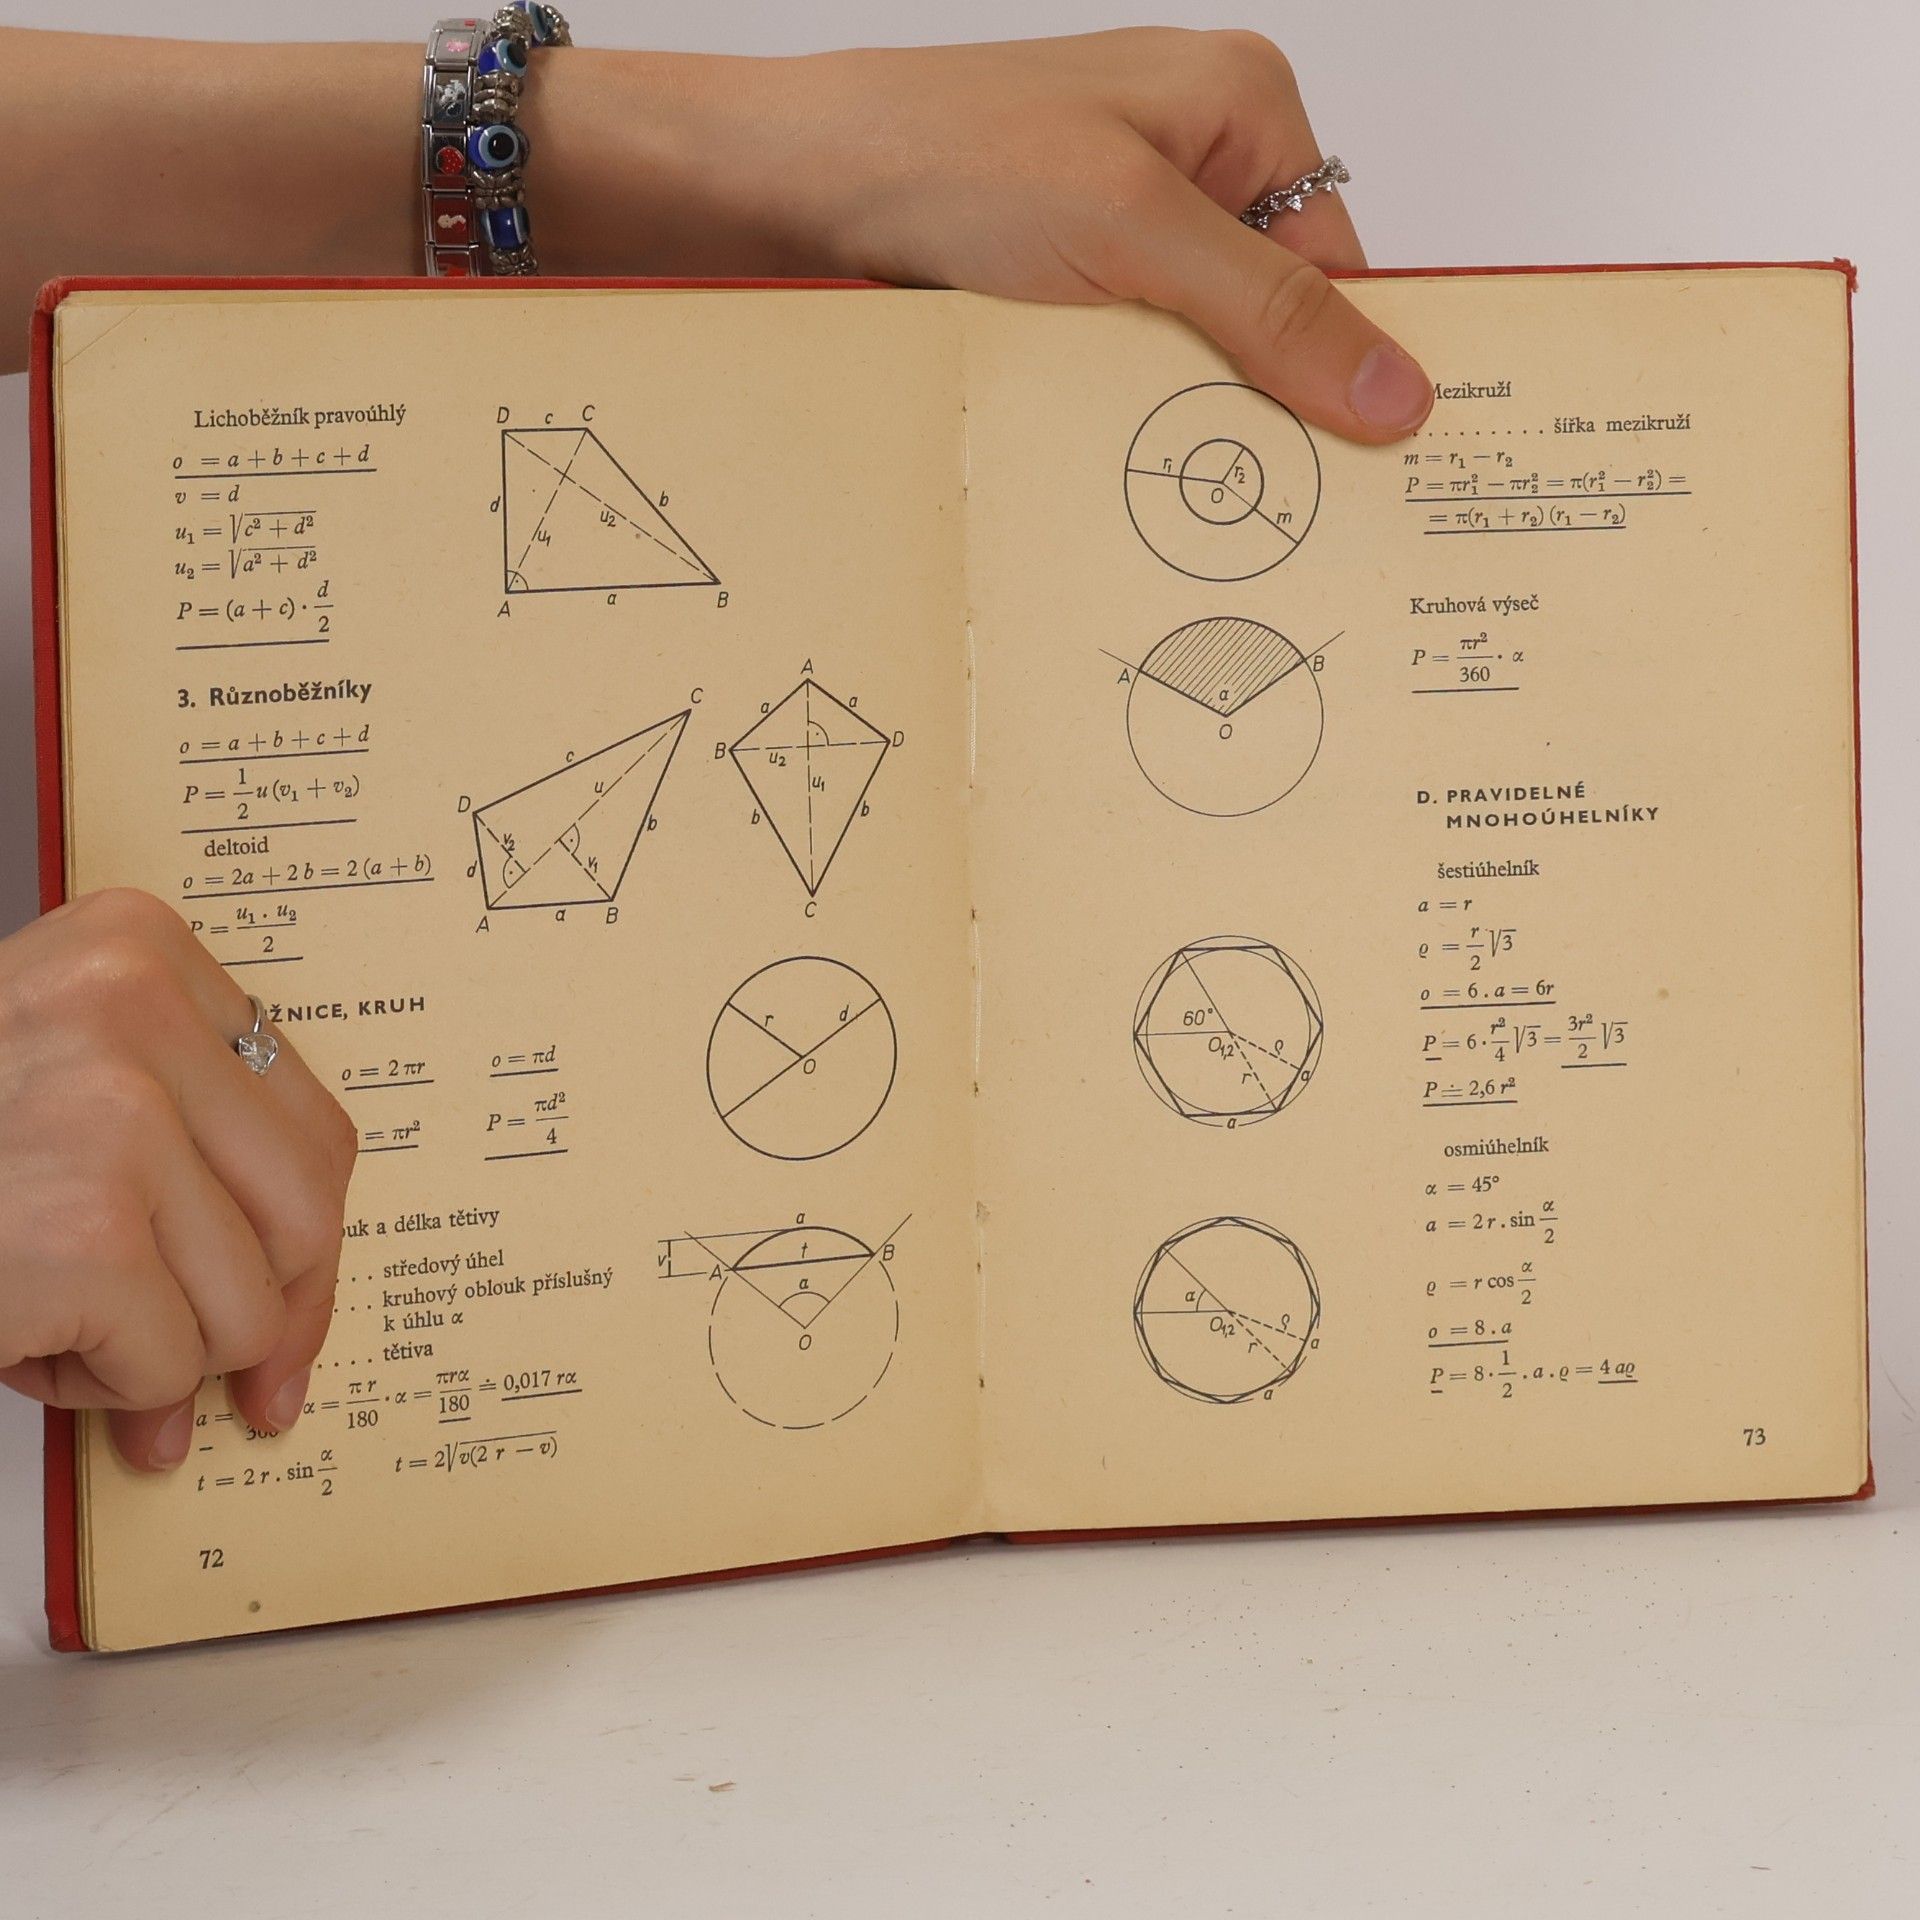 Lichoběžník pravoúhlý
o = a + b + c + d
v = d
u₁ = √(c² + d²)
u₂ = √(a² + d²)
P = (a + c) · d/2
D c C
d u₁ u₂ b
A a B
3. Různoběžníky
o = a + b + c + d
P = 1/2 u (v₁ + v₂)
deltoid
o = 2a + 2b = 2 (a + b)
P = u₁ . u₂ / 2
C
c u
D b
v₂ v₁
d
A a B
A
a a
B u₂ D
u₁
b b
C
KRUH
o = 2πr o = πd
= πr² P = πd²/4
r d
O
a délka tětivy
. . . středový úhel
. . . kruhový oblouk příslušný
k úhlu α
. . . . tětiva
a = α = π r/180 · α = πrα/180 ≐ 0,017 rα
t = 2 r . sin α/2 t = 2√(v(2 r − v))
a
v t
A B
α
O
72
r₁ r₂
O
m
Mezikruží
. . . . . . . . . šířka mezikruží
m = r₁ − r₂
P = πr₁² − πr₂² = π(r₁² − r₂²) =
= π(r₁ + r₂) (r₁ − r₂)
A B
α
O
Kruhová výseč
P = πr²/360 · α
D. PRAVIDELNÉ
MNOHOÚHELNÍKY
šestiúhelník
a = r
ϱ = r/2 √3
o = 6 . a = 6r
P = 6 · r²/4 √3 = 3r²/2 √3
P ≐ 2,6 r²
60°
O₁,₂ ϱ
r a
a
osmiúhelník
α = 45°
a = 2 r . sin α/2
ϱ = r cos α/2
o = 8 . a
P = 8 · 1/2 . a . ϱ = 4 aϱ
α
O₁,₂ ϱ
r a
a
73